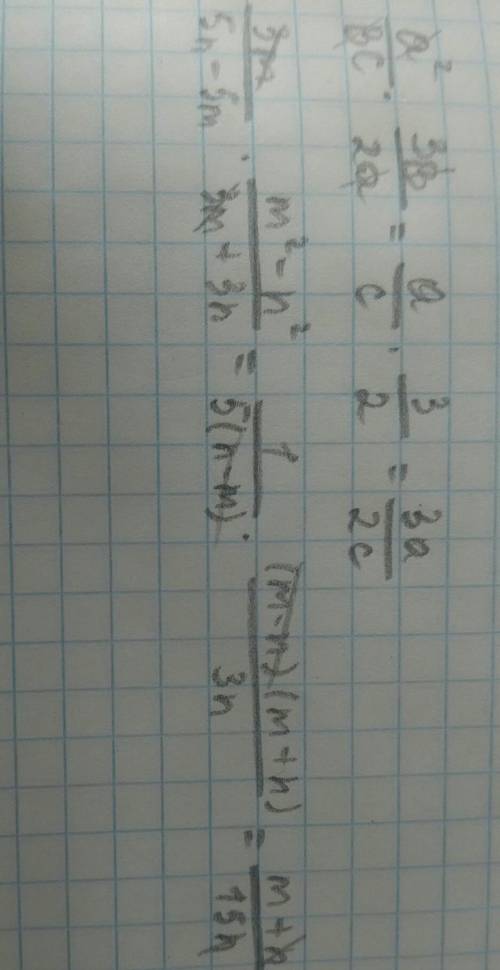 a²/bc · 3b/2a = a/c · 3/2 = 3a/2c
3m/(5n - 5m) · (m² - n²)/(3m + 3n) = 1/5(n-m) · (m-n)(m+n)/3n = m+n/15n